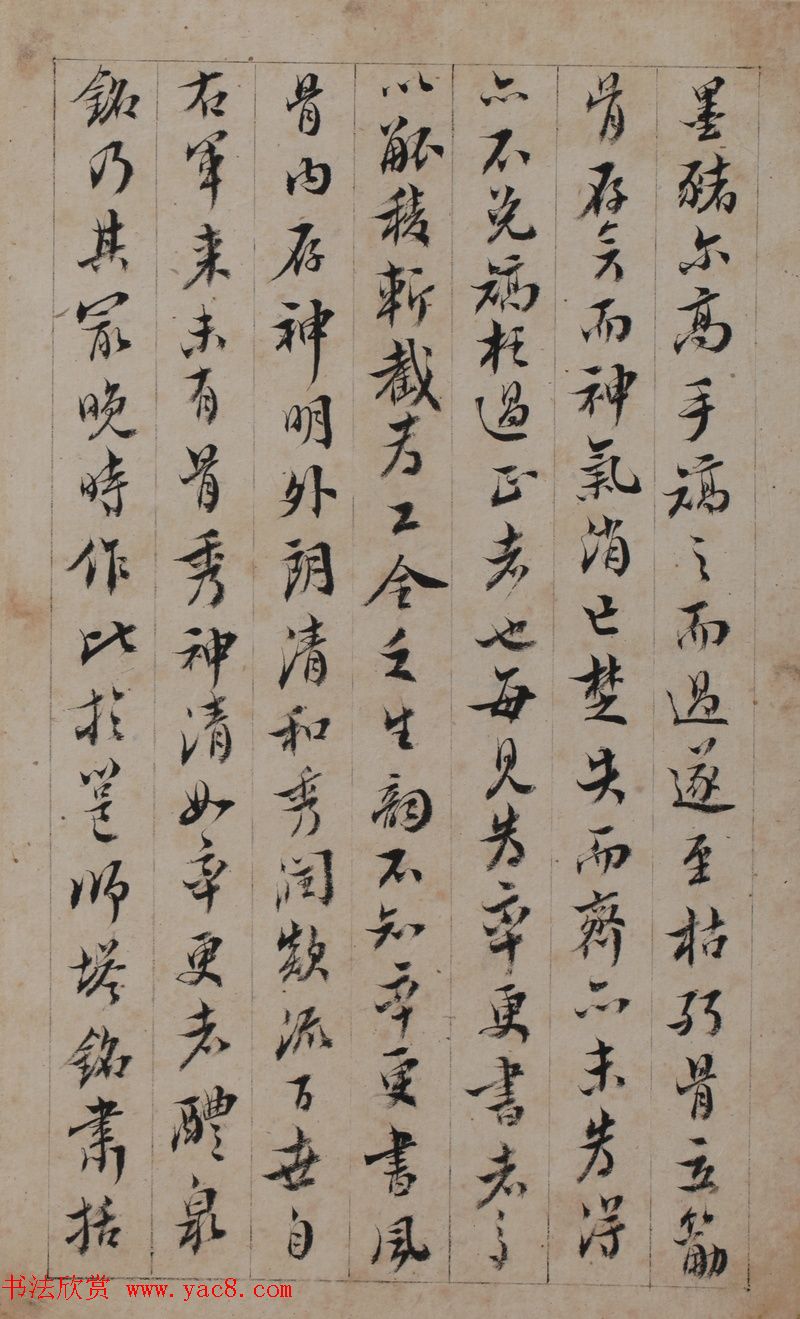 墨豬尔高手矯之而過遂至枯朽骨立筋
骨存矣而神氣消亡楚失而齊亦未為得
亦不免矯枉過正者也每見為率更書者
以觚稜斬截為工全乏生韻不知率更書風
骨内存神明外朗清和秀潤飄流百世自
右軍来未有骨秀神清如率更者醴泉
銘乃其最晚時作比於邕師塔銘肅括
书法欣赏 www.yac8.com